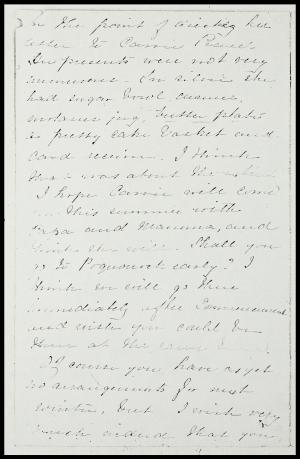 on the point of directing her
letter to Carrie
Her presents were not very
numerous. In silver she
had sugar bowl, creamer,
molasses jug, butter plate
a pretty cake basket and
card receiver. I think
this was about the
I hope Carrie will come
this summer with
Papa and Mamma, and
think she will. Shall you
go to Poquonock early? I
think we will go there
immediately after Commencement
and wish you could be
there at the same
Of course you have as yet
no arrangements for next
winter, but I wish very
much indeed that you